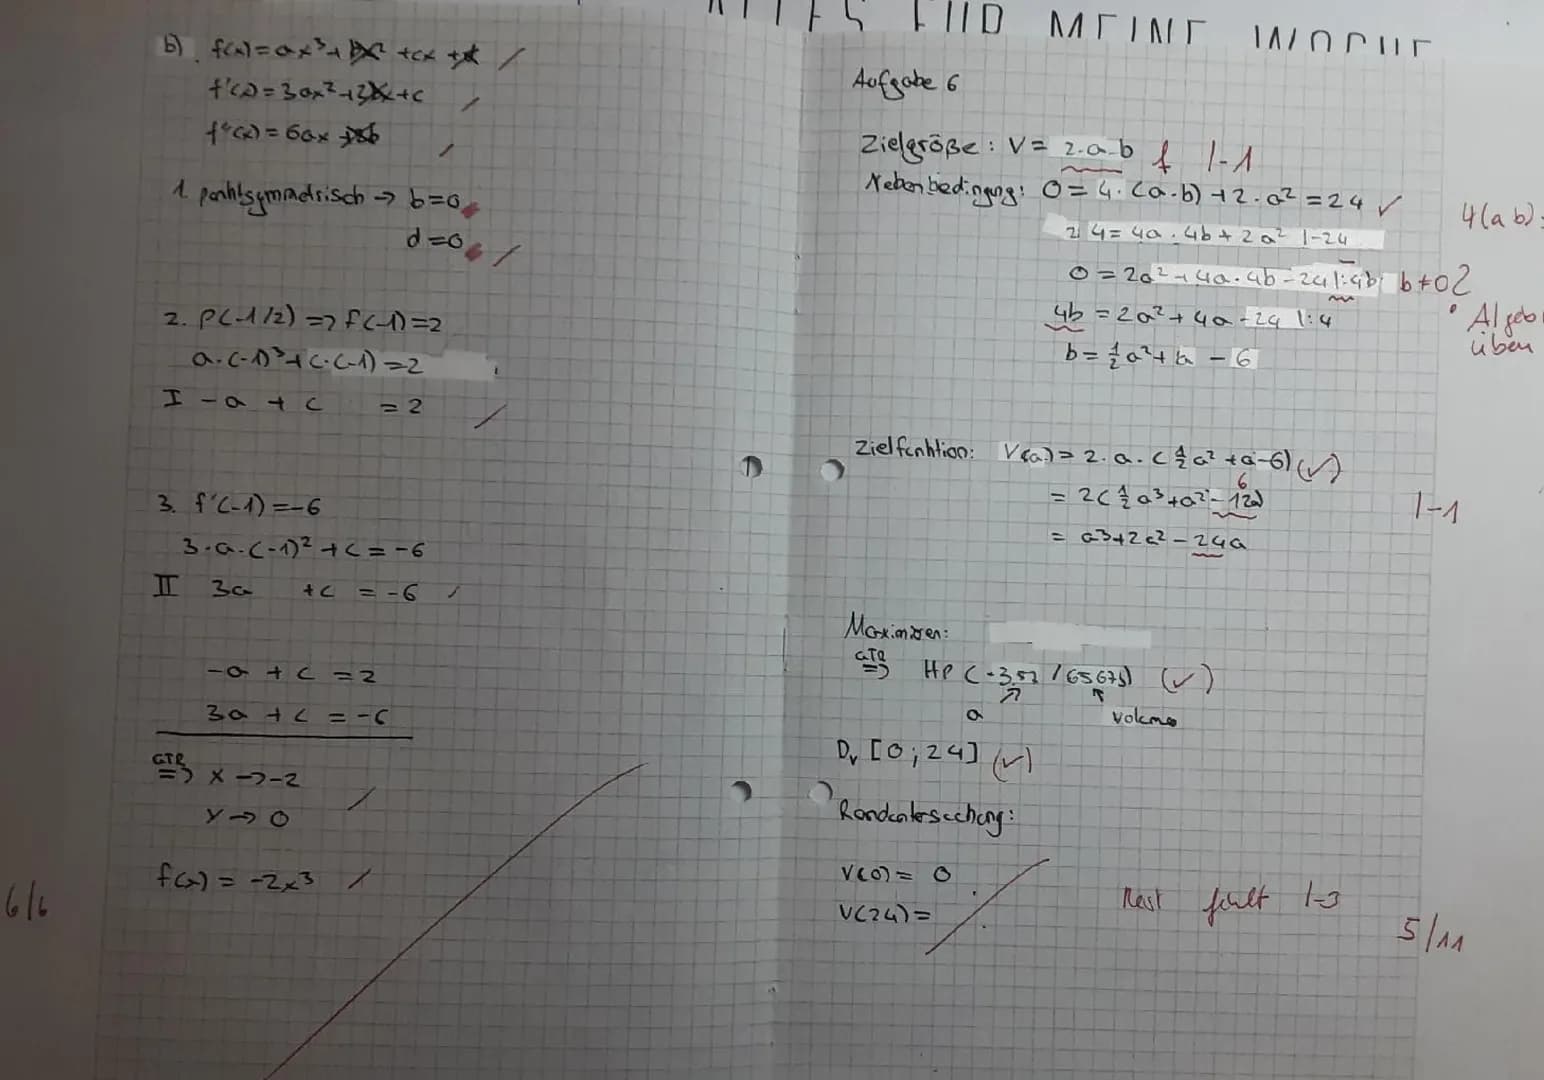 b) f(x) = ax³ + bx² + cx + d
f'(x) = 3ax² + 2bx + c
f''(x) = 6ax + 2b
1. punktsymmetrisch → b=0
d=0
2. P(-1/2) => f(-1)=2
a·(-1)³+c·(-1)=2
I -a + c = 2
3. f'(-1)=-6
3·a·(-1)²+c=-6
II 3a +c = -6
-a + c = 2
3a + c = -6
GTR => x→-2
y→0
f(x) = -2x³
6/6
Aufgabe 6
Zielgröße: V = 2·a·b f |-1
Nebenbedingung: O = 4·(a·b)+2·a² = 24 ✓
24 = 4a·4b+2a² |-24
0 = 2a²+4a·4b-24 |:4b b≠0?
4b = 2a²+4a-24 |:4
b = ½a²+a-6
4(ab)=
üben
Zielfunktion: V(a) = 2·a·(½a²+a-6) (✓)
6
= 2(½a³+a²-12a) |-1
= a³+2a²-24a
Maximieren:
GTR => HP (-3,57/65675) (✓)
a
Volumen
Dv [0;24] (✓)
Randuntersuchung:
V(0) = 0
V(24) =
Rest fehlt |-3
5/11